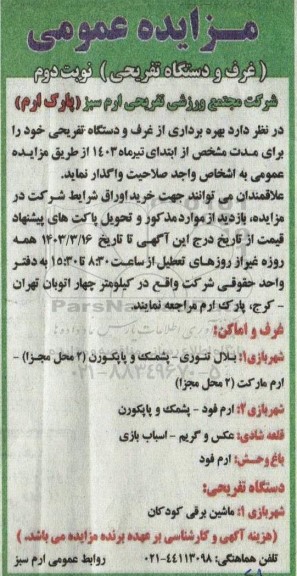 مزایده عمومی
( غرف و دستگاه تفریحی ) نوبت دوم
شرکت مجتمع ورزشی تفریحی ارم سبز (پارک ارم)
در نظر دارد بهره برداری از غرف و دستگاه تفریحی خود را
برای مدت مشخص از ابتدای تیرماه ۱۴۰۳ از طریق مزایده
عمومی به اشخاص واجد صلاحیت واگذار نماید.
علاقمندان می توانند جهت خرید اوراق شرایط شرکت در
مزایده، بازدید از موارد مذکور و تحویل پاکت های پیشنهاد
قیمت از تاریخ درج این آگهی تا تاریخ ۱۴۰۳/۳/۱۶ همه
روزه غیر از روزهای تعطیل از ساعت ۸:۳۰ تا ۱۵:۳۰ به دفتر
واحد حقوقی شرکت واقع در کیلومتر چهار اتوبان تهران
- کرج، پارک ارم مراجعه نمایند.
غرف و اماکن:
شهربازی۱: بلال تنوری - پشمک و پاپکورن (۲ محل مجزا) -
ارم مارکت (۲ محل مجزا)
شهربازی ۲: ارم فود - پشمک و پاپکورن
قلعه شادی: عکس و گریم - اسباب بازی
باغ وحش: ارم فود
دستگاه تفریحی:
شهربازی ۱: ماشین برقی کودکان
(هزینه آگهی و کارشناسی بر عهده برنده مزایده می باشد.)
تلفن هماهنگی: ۴۴۱۱۳۰۹۸-۰۲۱ روابط عمومی ارم سبز
۰۲۱-۸۸۳۴۹۶۷۰-۵